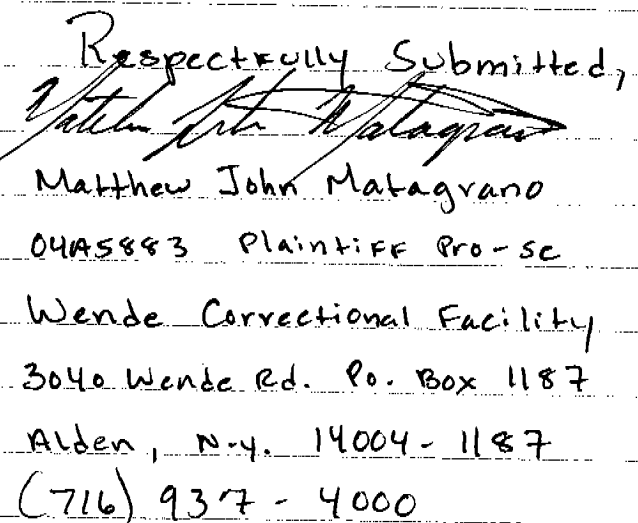 Respectfully Submitted,
Matthew John Matagrano
Matthew John Matagrano
04A5883 Plaintiff Pro-se
Wende Correctional Facility
3040 Wende Rd. Po. Box 1187
Alden, N.y. 14004-1187
(716) 937-4000